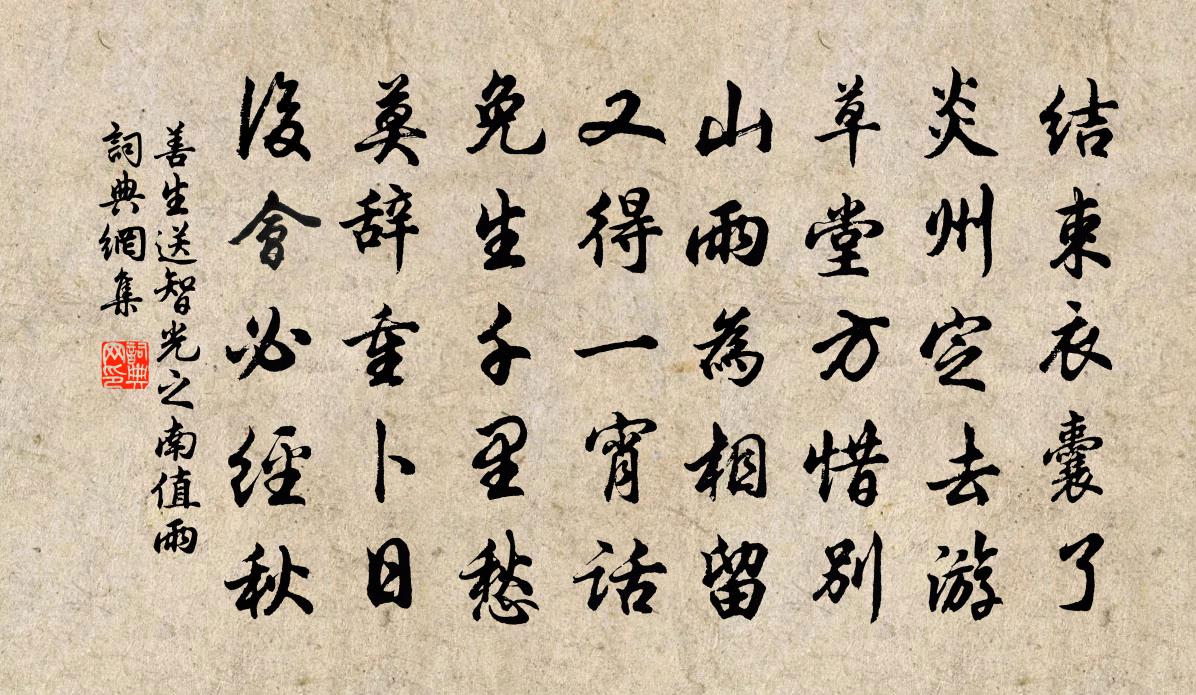 结束衣囊了
炎州定去游
草堂方惜别
山雨為相留
又得一宵话
免生千里愁
莫辞重卜日
後會必經秋
善生送智光之南值雨
詞典網集
詞典
网印